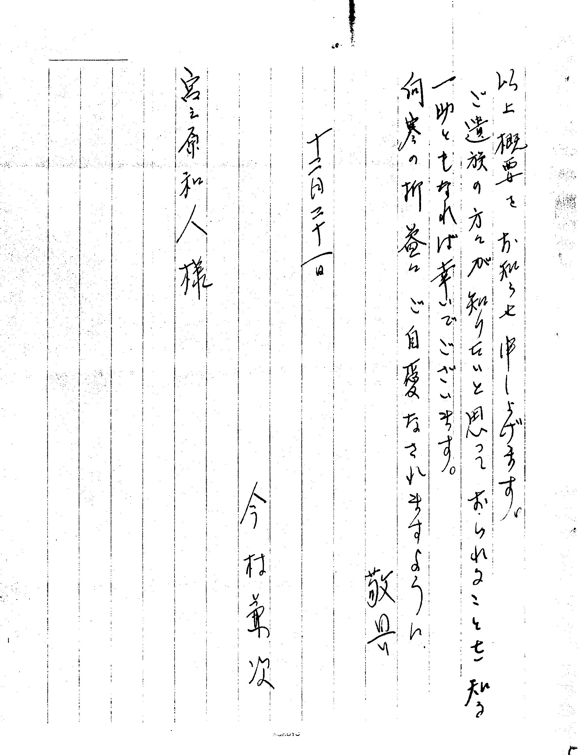 以上概要をお知らせ申し上げます。
ご遺族の方々が知りたいと思っておられることを知る
一助ともなれば幸いでございます。
向寒の折 益々ご自愛なされますように
敬具
十二月二十一日
今村兼次
宮之原和人様
KOKUYO